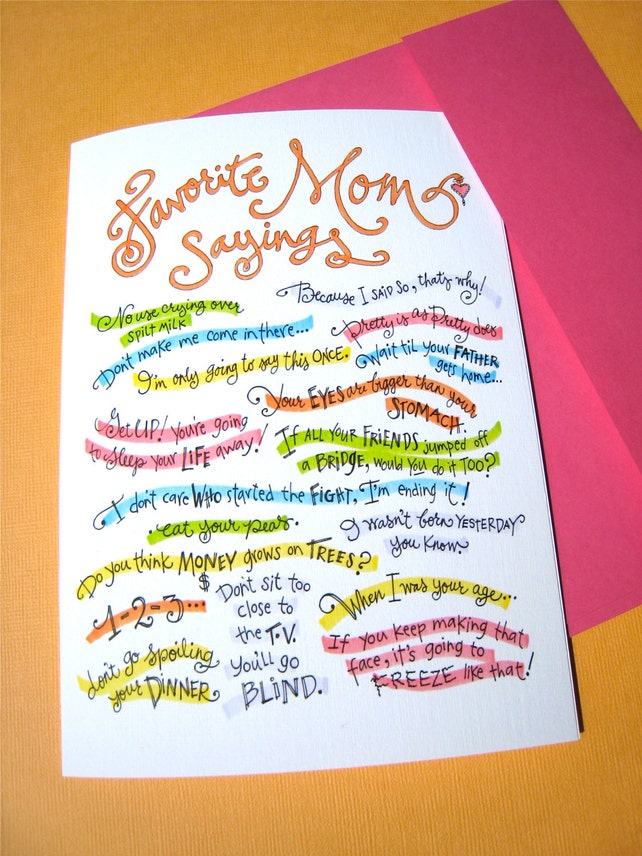 Favorite Mom
Sayings
Because I SAID SO, that's why!
No use crying over
SPILT MILK
Pretty is as Pretty does
Don't make me come in there...
Wait til your FATHER
gets home...
I'm only going to say this ONCE.
Your EYES are bigger than your
STOMACH.
Get UP! You're going
to sleep your LIFE away!
If ALL YOUR FRIENDS jumped off
a BRIDGE, would YOU do it TOO?
I don't care WHO started the FIGHT, I'm ending it!
. eat your peas.
I wasn't born YESTERDAY
you know.
Do you think MONEY grows on TREES?
$
1-2-3...
Don't sit too
close to
the T.V.
You'll go
BLIND.
When I was your age...
don't go spoiling
your DINNER
If you keep making that
face, it's going to
FREEZE like that!